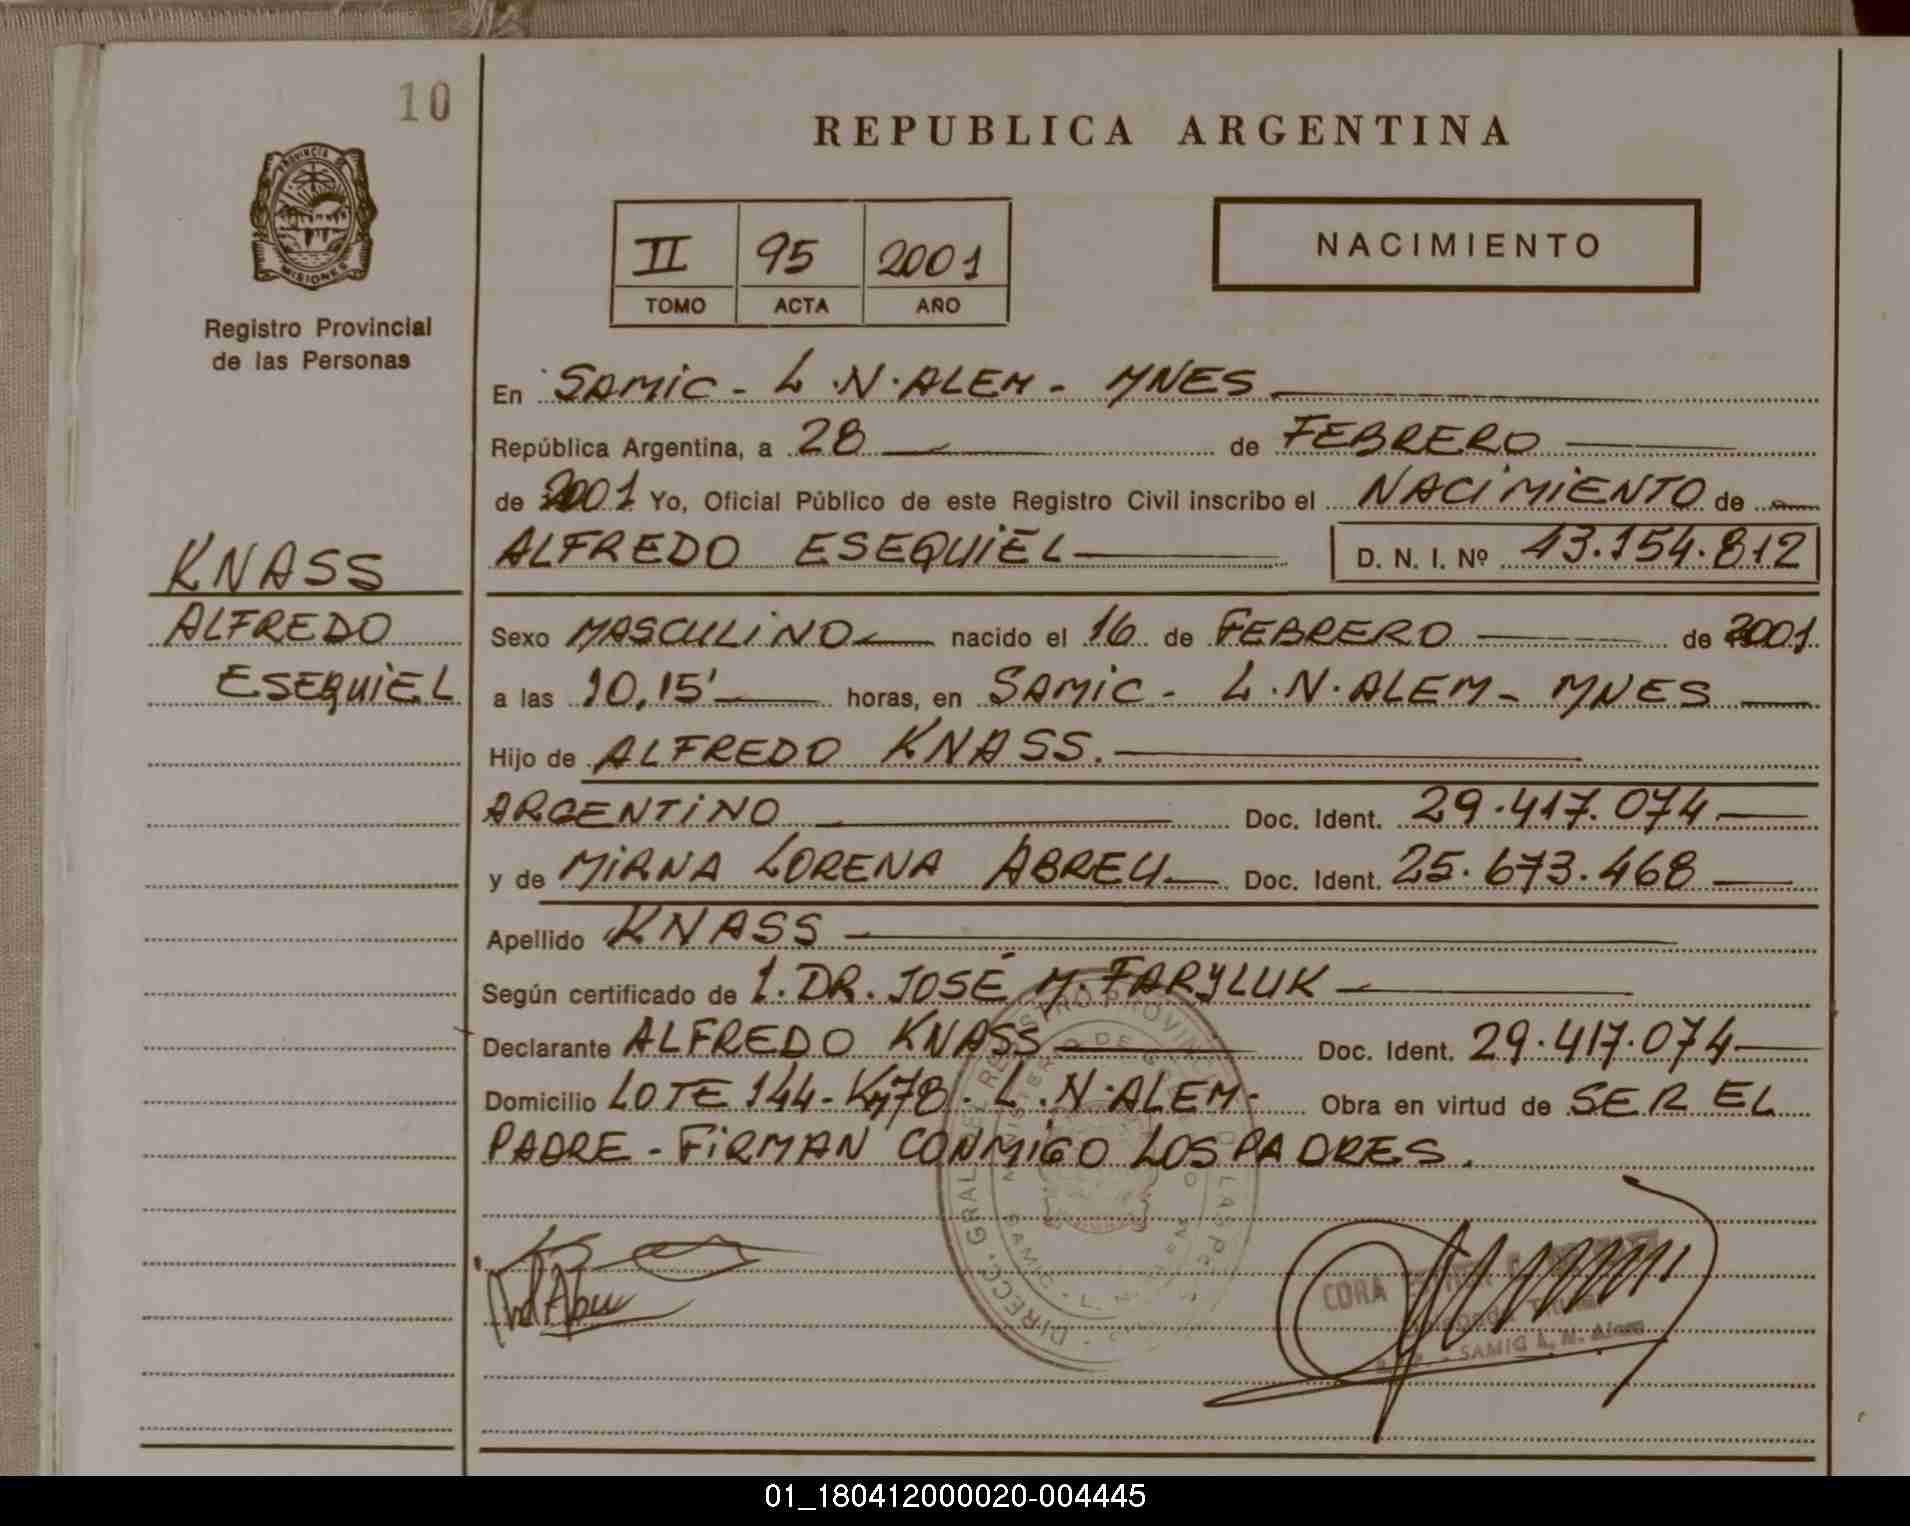 10
REPUBLICA ARGENTINA
PROVINCIA DE
MISIONES
Registro Provincial
de las Personas
II 95 2001
TOMO ACTA AÑO
NACIMIENTO
En SAMIC - L.N.ALEM - MNES
República Argentina, a 28 de FEBRERO
de 2001 Yo, Oficial Público de este Registro Civil inscribo el NACIMIENTO de
ALFREDO ESEQUIEL D. N. I. Nº 43.154.812
KNASS
ALFREDO
ESEQUIEL
Sexo MASCULINO nacido el 16 de FEBRERO de 2001
a las 10,15' horas, en SAMIC - L.N.ALEM - MNES
Hijo de ALFREDO KNASS.
ARGENTINO Doc. Ident. 29.417.074
y de MIRNA LORENA ABREU Doc. Ident. 25.673.468
Apellido KNASS
Según certificado de 1. DR. JOSÉ M. FARYLUK
Declarante ALFREDO KNASS Doc. Ident. 29.417.074
Domicilio LOTE 144 - Km78 - L.N.ALEM - Obra en virtud de SER EL
PADRE - FIRMAN CONMIGO LOS PADRES.
DIRECC. GRAL. DEL REGISTRO PROVINCIAL DE LAS PE
MINISTERIO DE
SAMIC - L. N.
CORA
Titular
SAMIC L. N. Alem
01_180412000020-004445